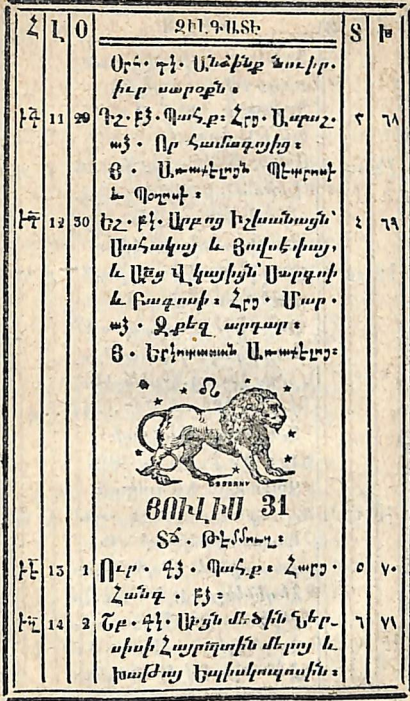 Հ Լ Օ ԶԻԼԳԱՏԷ Տ Խ
Օրհ. դկ. Անձինք նուիր.
իւր սարօքն։
11 29 Դշ. բձ. Պահք։ Հրց. Ա
ած. Որ համագոյից։
Յ. Առաքելոցն Պետրոսի
և Պօղոսի։ ՀԸ
12 30 Եշ. բկ. Սրբոց Իշխանացն՝ ՀԹ
Սահակայ և Յովսէփայ,
և Սրց Վկայիցն՝ Սարգսի
և Բագոսի։ Հրց. Մար.
ած. Զքեզ արդար։
Յ. Երկոտասան Առաքելոց։
♌
ՅՈՒԼԻՍ 31
Տճ. Թէմմուզ։
13 1 Ուր. գձ. Պահք։ Հարց. 0 ՚
Համգ. բձ։
14 2 Շբ. գկ. Սրցն մեծին Ներ-
սիսի Հայրապետին մերոյ և
Խաթոյ Եպիսկոպոսին։